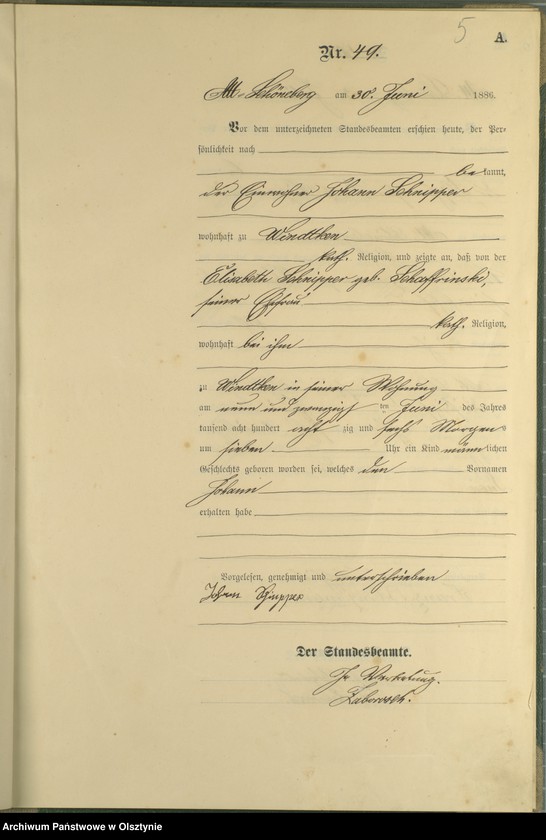 5
A.
Nr. 49.
Alt-Schöneberg am 30. Juni 1886.
Vor dem unterzeichneten Standesbeamten erschien heute, der Per-
sönlichkeit nach
bekannt,
der Einwohner Johann Schnipper
wohnhaft zu Wendtken
kath. Religion, und zeigte an, daß von der
Elisabeth Schnipper geb. Schaffrinski,
seiner Ehefrau
kath. Religion,
wohnhaft bei ihm
zu Windtken in seiner Wohnung
am neun und zwanzigst ten Juni des Jahres
tausend acht hundert acht zig und sechs Morgens
um sieben Uhr ein Kind männlichen
Geschlechts geboren worden sei, welches den Vornamen
Johann
erhalten habe
Vorgelesen, genehmigt und unterschrieben
Johann
Der Standesbeamte.
In Vertretung.
Archiwum Państwowe w Olsztynie